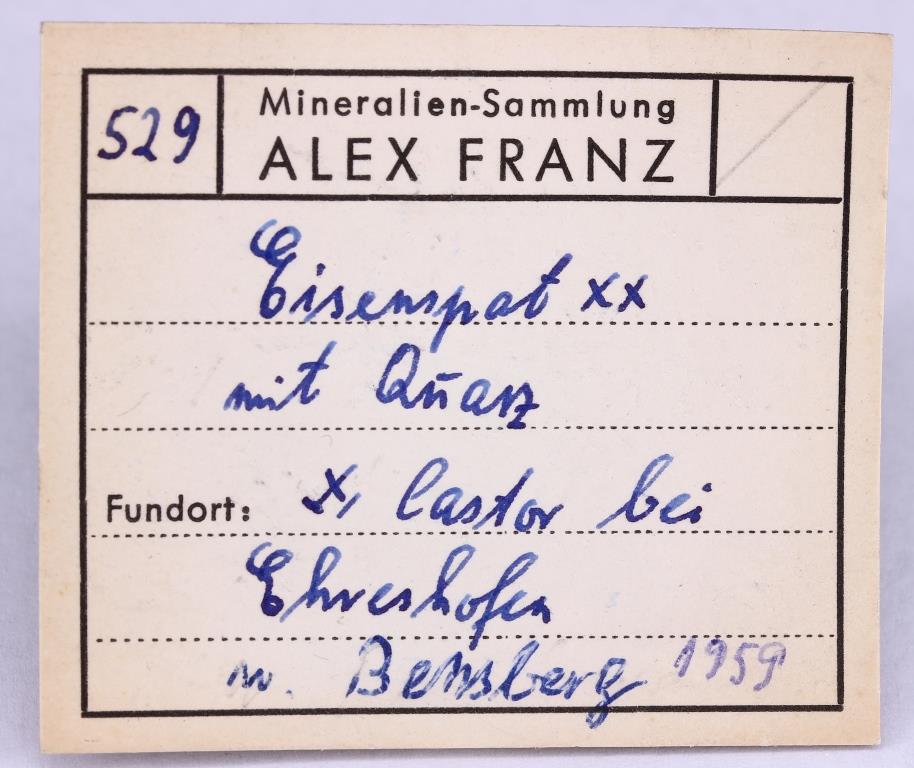 529
Mineralien-Sammlung
ALEX FRANZ
Eisenspat xx
mit Quarz
Fundort: Castor bei
Ehreshofen
Bensberg 1959